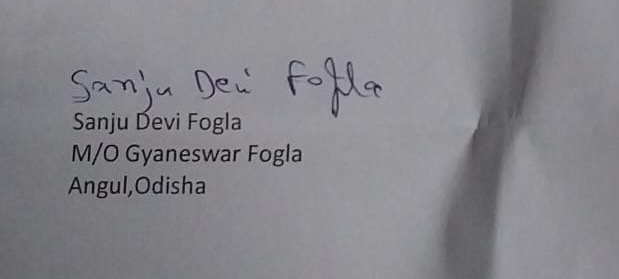 Sanju Devi Fogla
Sanju Devi Fogla
M/O Gyaneswar Fogla
Angul,Odisha